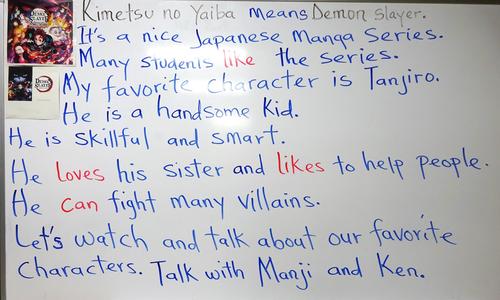 Kimetsu no Yaiba means Demon slayer.
It's a nice Japanese Manga Series.
Many students like the series.
My favorite character is Tanjiro.
He is a handsome kid.
He is skillful and smart.
He loves his sister and likes to help people.
He can fight many villains.
Let's watch and talk about our favorite
characters. Talk with Manji and Ken.